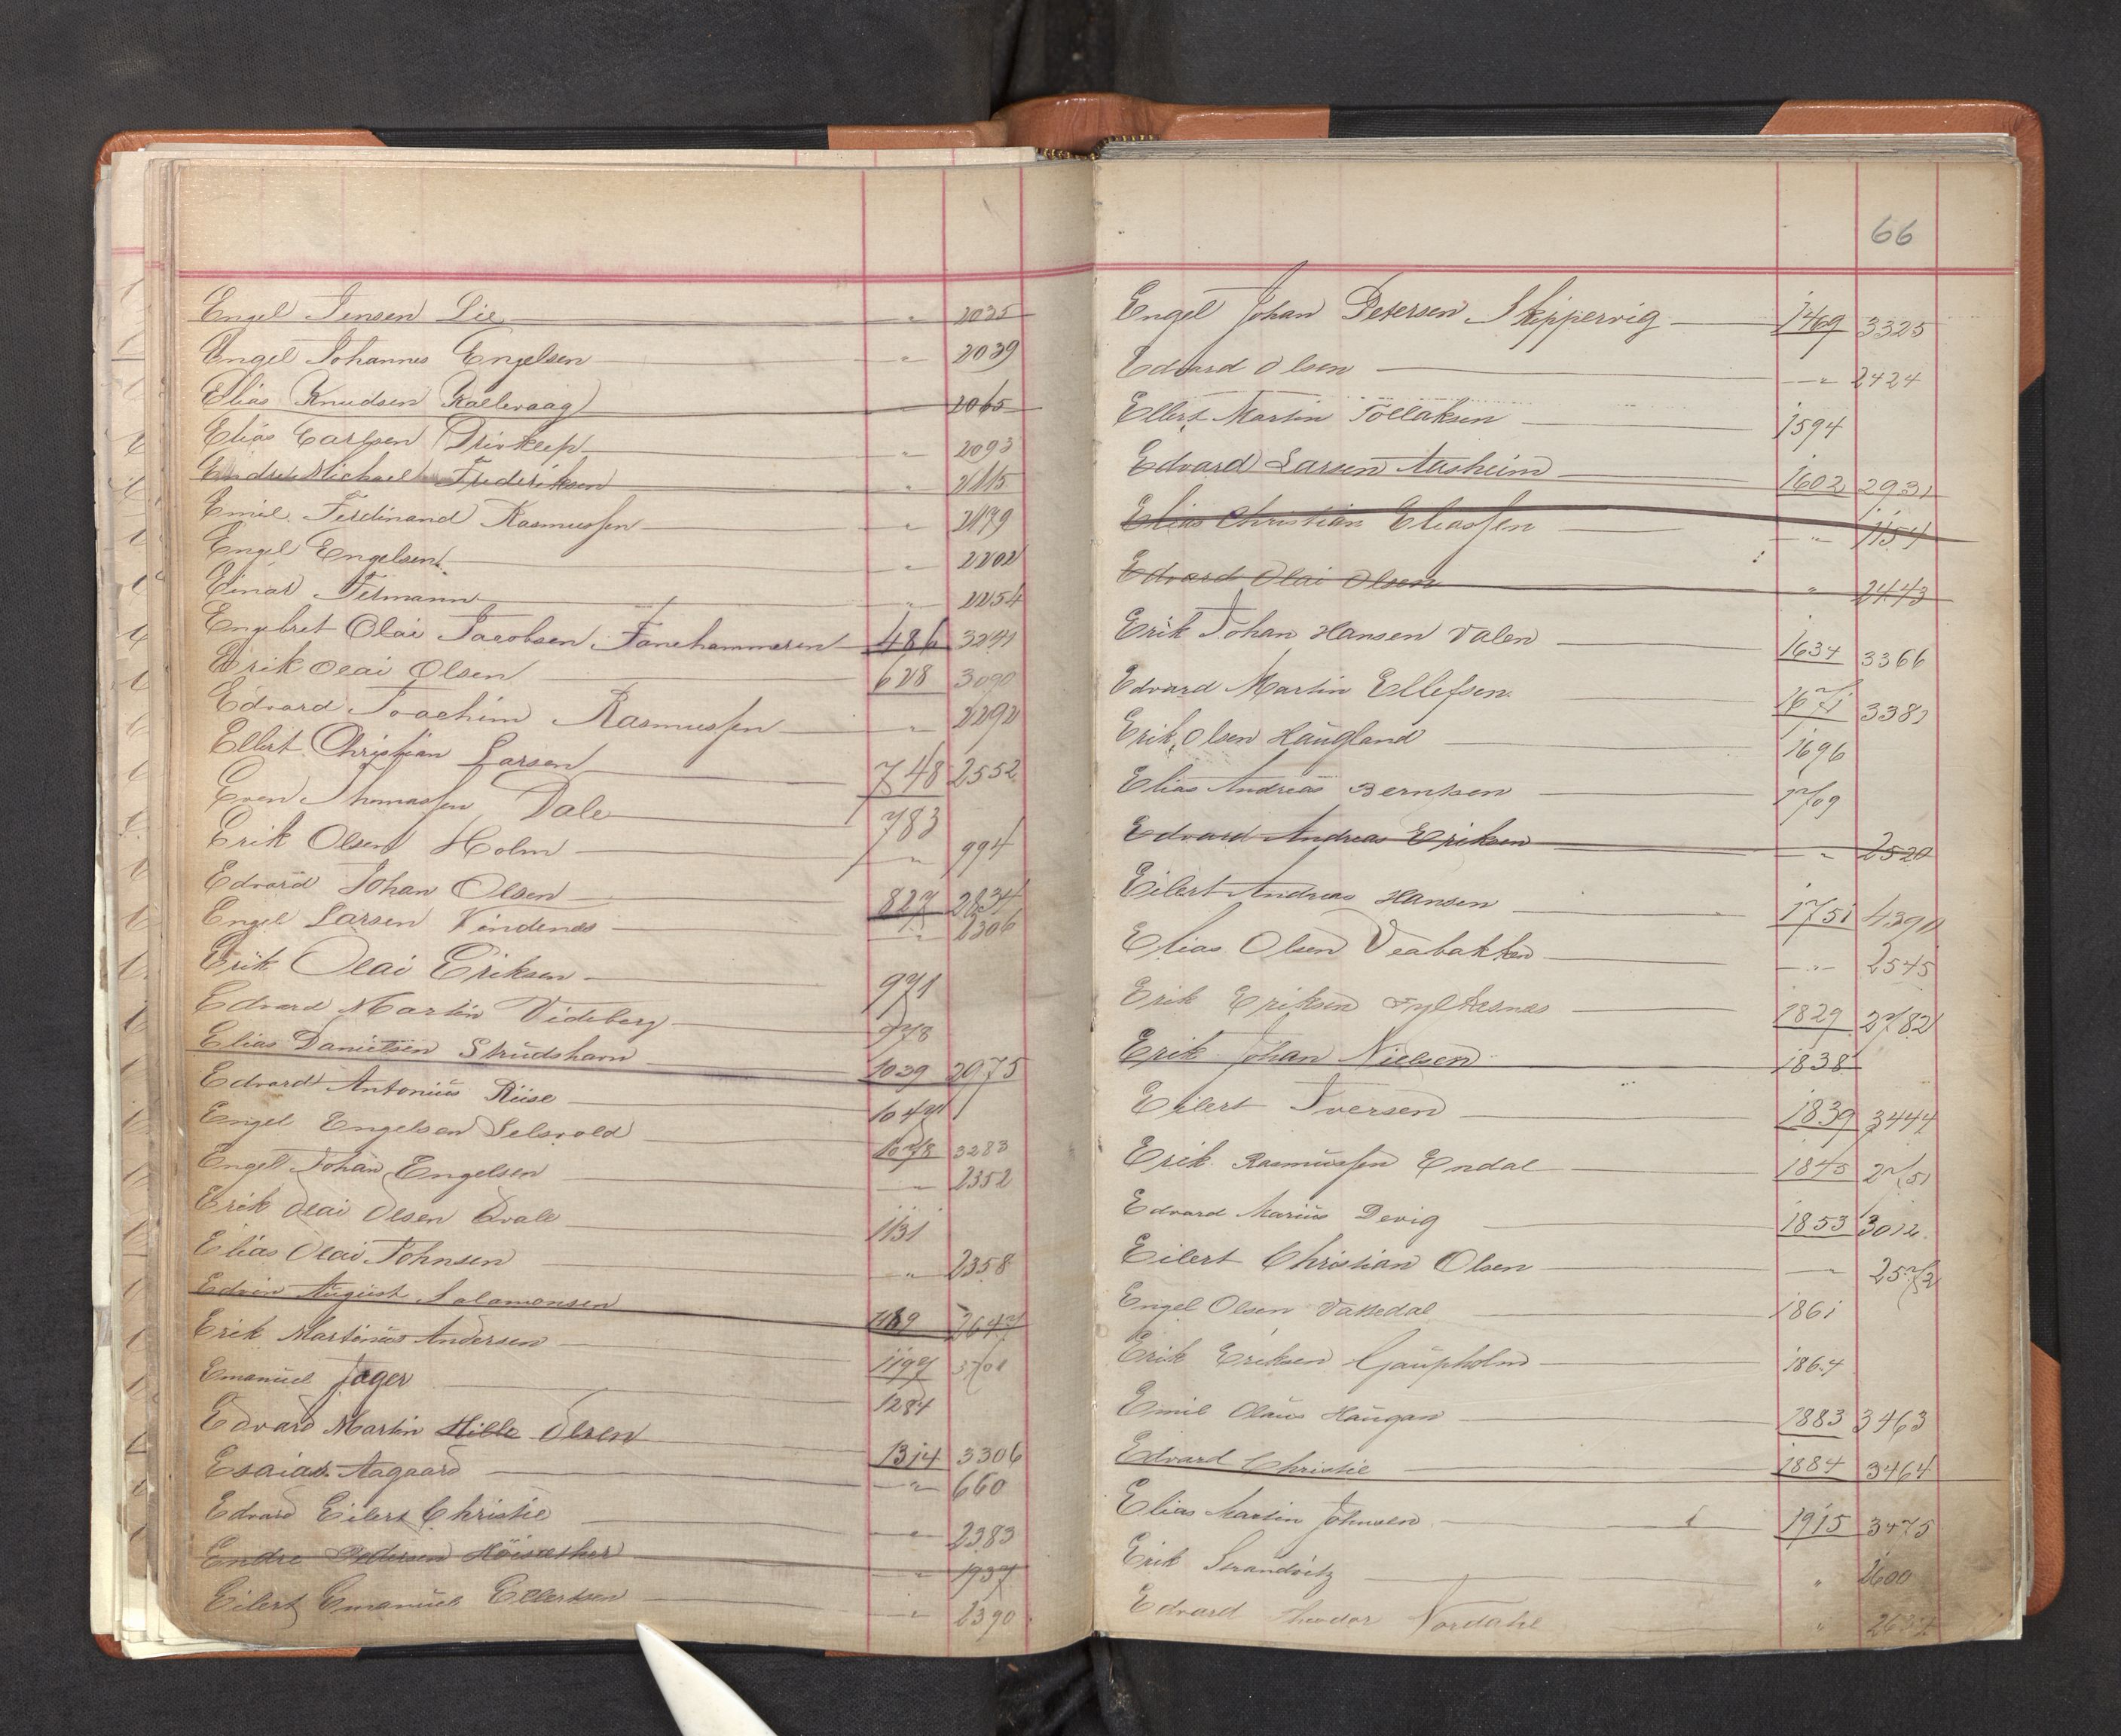 Engel Jensen Lie " 2035
Engel Johannes Engelsen " 2039
Elias Knudsen Kallevaag " 2065
Elias Carlsen Drivkleip " 2093
Endre Michael Frederiksen " 2115
Emil Ferdinand Rasmussen " 2179
Engel Engelsen " 2202
Einar Tilmann " 2254
Engebret Olai Jacobsen Fanehammeren 486 3291
Erik Olai Olsen 628 3090
Edvard Joachim Rasmussen " 2292
Ellert Christian Larsen 748 2552
Even Thomassen Dale 783
Erik Olsen Holm " 994
Edvard Johan Olsen 827 2834
Engel Larsen Vindenes " 2306
Erik Olai Eriksen 971
Edvard Martin Videberg 978
Elias Danielsen Strudshavn 1039 2975
Edvard Antonius Riise 1042
Engel Engelsen Selsvold 1078 3283
Engel Johan Engelsen " 2352
Erik Olai Olsen Qvale 1131
Elias Olai Johnsen " 2358
Edvin August Salamonsen 1189 2647
Erik Martinus Andersen 1197 3701
Emanuel Jager 1284
Edvard Martin Hille Olsen 1314 3306
Esaias Aagaard " 660
Edvard Eilert Christie " 2383
Endre Pedersen Höisæther " 1937
Eilert Emanuel Ellertsen " 2390
66
Engel Johan Petersen Skippervig 1469 3325
Edvard Olsen " 2424
Ellert Martin Tollaksen 1594
Edvard Larsen Aasheim 1602 2931
Elias Christian Eliassen " 1154
Edvard Olai Olsen " 2443
Erik Johan Hansen Valen 1634 3366
Edvard Martin Ellefsen 1671 3381
Erik Olsen Haugland 1696
Elias Andreas Berntsen 1709
Edvard Andreas Eriksen " 2520
Eilert Andreas Hansen 1751
Elias Olsen Veabakken " 2545
Erik Eriksen Fylkesnes 1829 2782
Erik Johan Nielsen 1838
Eilert Iversen 1839 3444
Erik Rasmussen Endal 1845 2751
Edvard Marius Devig 1853 3012
Eilert Christian Olsen " 2572
Engel Olsen Vassedal 1861
Erik Eriksen Gaupholm 1864
Emil Olaus Haugan 1883 3463
Edvard Christie 1884 3464
Elias Martin Johnsen 1915 3475
Erik Strandvitz " 2600
Edvard Theodor Nordahl "